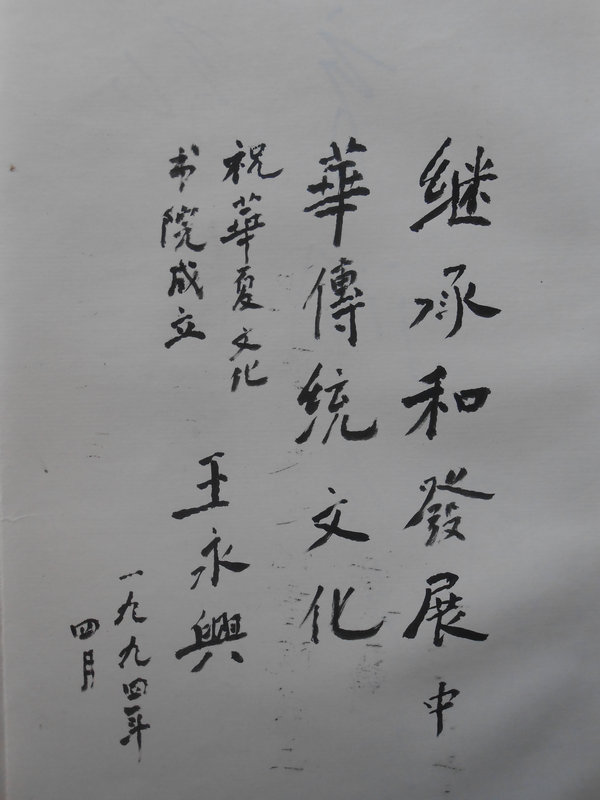 继承和發展中
華傳统文化
祝華夏文化
书院成立
王永興
一九九四年
四月